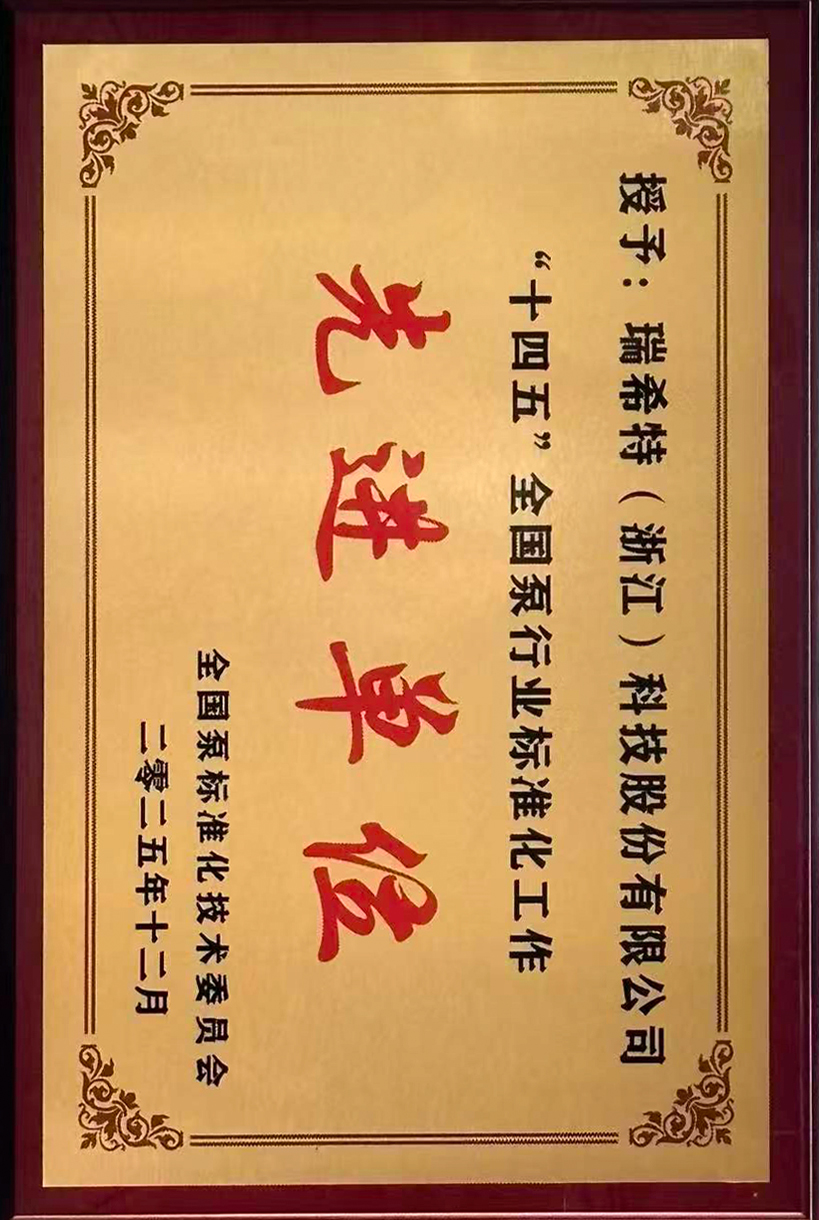 授予：瑞希特（浙江）科技股份有限公司
“十四五”全国泵行业标准化工作
先进单位
全国泵标准化技术委员会
二零二五年十二月